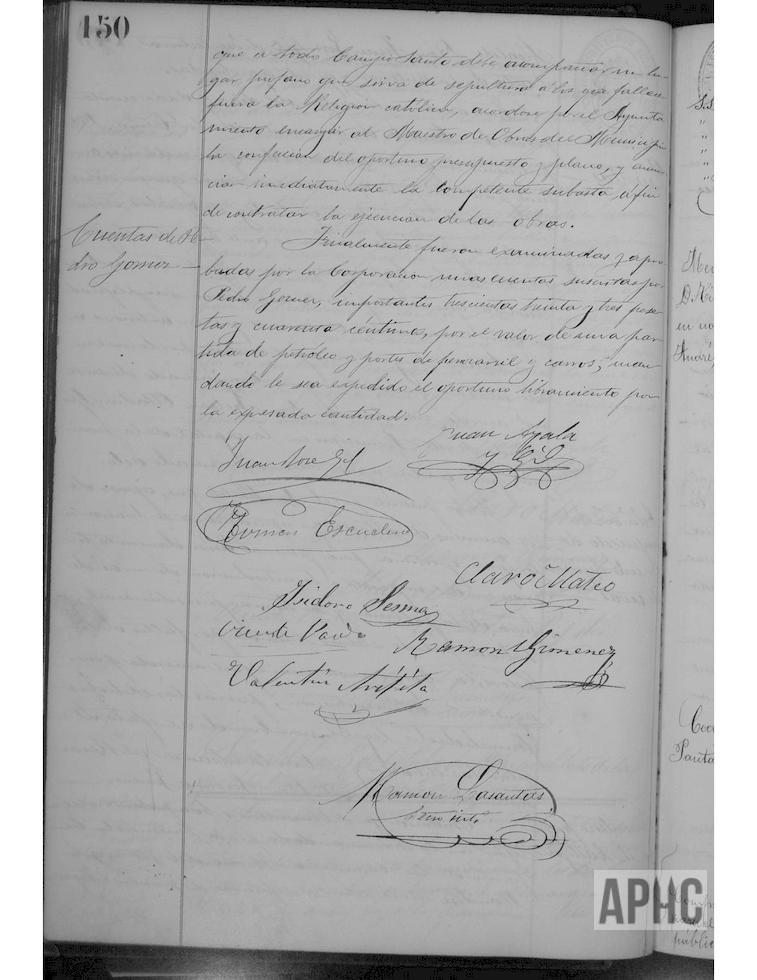 150
que a todo Campo Santo debe acompañar un lu-
gar profano que sirva de sepultura a los que fallecen
fuera la Religion católica, acordose por el Ayunta-
miento encargar al Maestro de Obras del Municipio
la confeccion del oportuno presupuesto y plano, y anun-
ciar inmediatamente la competente subasta, a fin
de contratar la ejecucion de las obras.
Cuentas de Pe-
dro Gomez
Finalmente fueron examinadas y apro-
badas por la Corporacion unas cuentas suscritas por
Pedro Gomez, importantes trescientas treinta y tres pese-
tas y cuarenta céntimos, por el valor de una par-
tida de petróleo y portes de ferrocarril y carros; man-
dando le sea expedido el oportuno libramiento por
la expresada cantidad.
Juan Ayala
y Gil
Juan José Gil
Roman Escudero
Claro Mateo
Isidoro Sesma
Vicente
Ramon Gimenez
Valentin
Ramon Lasantas
APHC